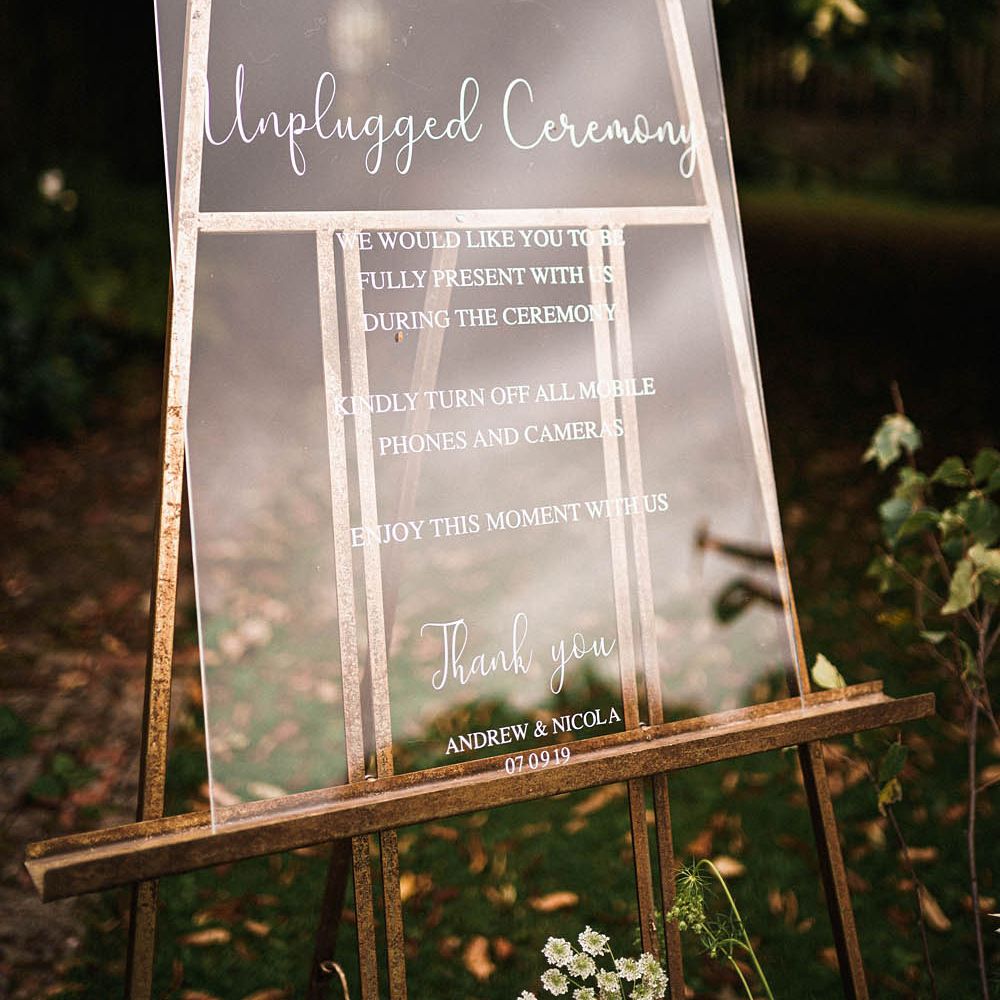 Unplugged Ceremony
WE WOULD LIKE YOU TO BE
FULLY PRESENT WITH US
DURING THE CEREMONY
KINDLY TURN OFF ALL MOBILE
PHONES AND CAMERAS
ENJOY THIS MOMENT WITH US
Thank you
ANDREW & NICOLA
07 09 19